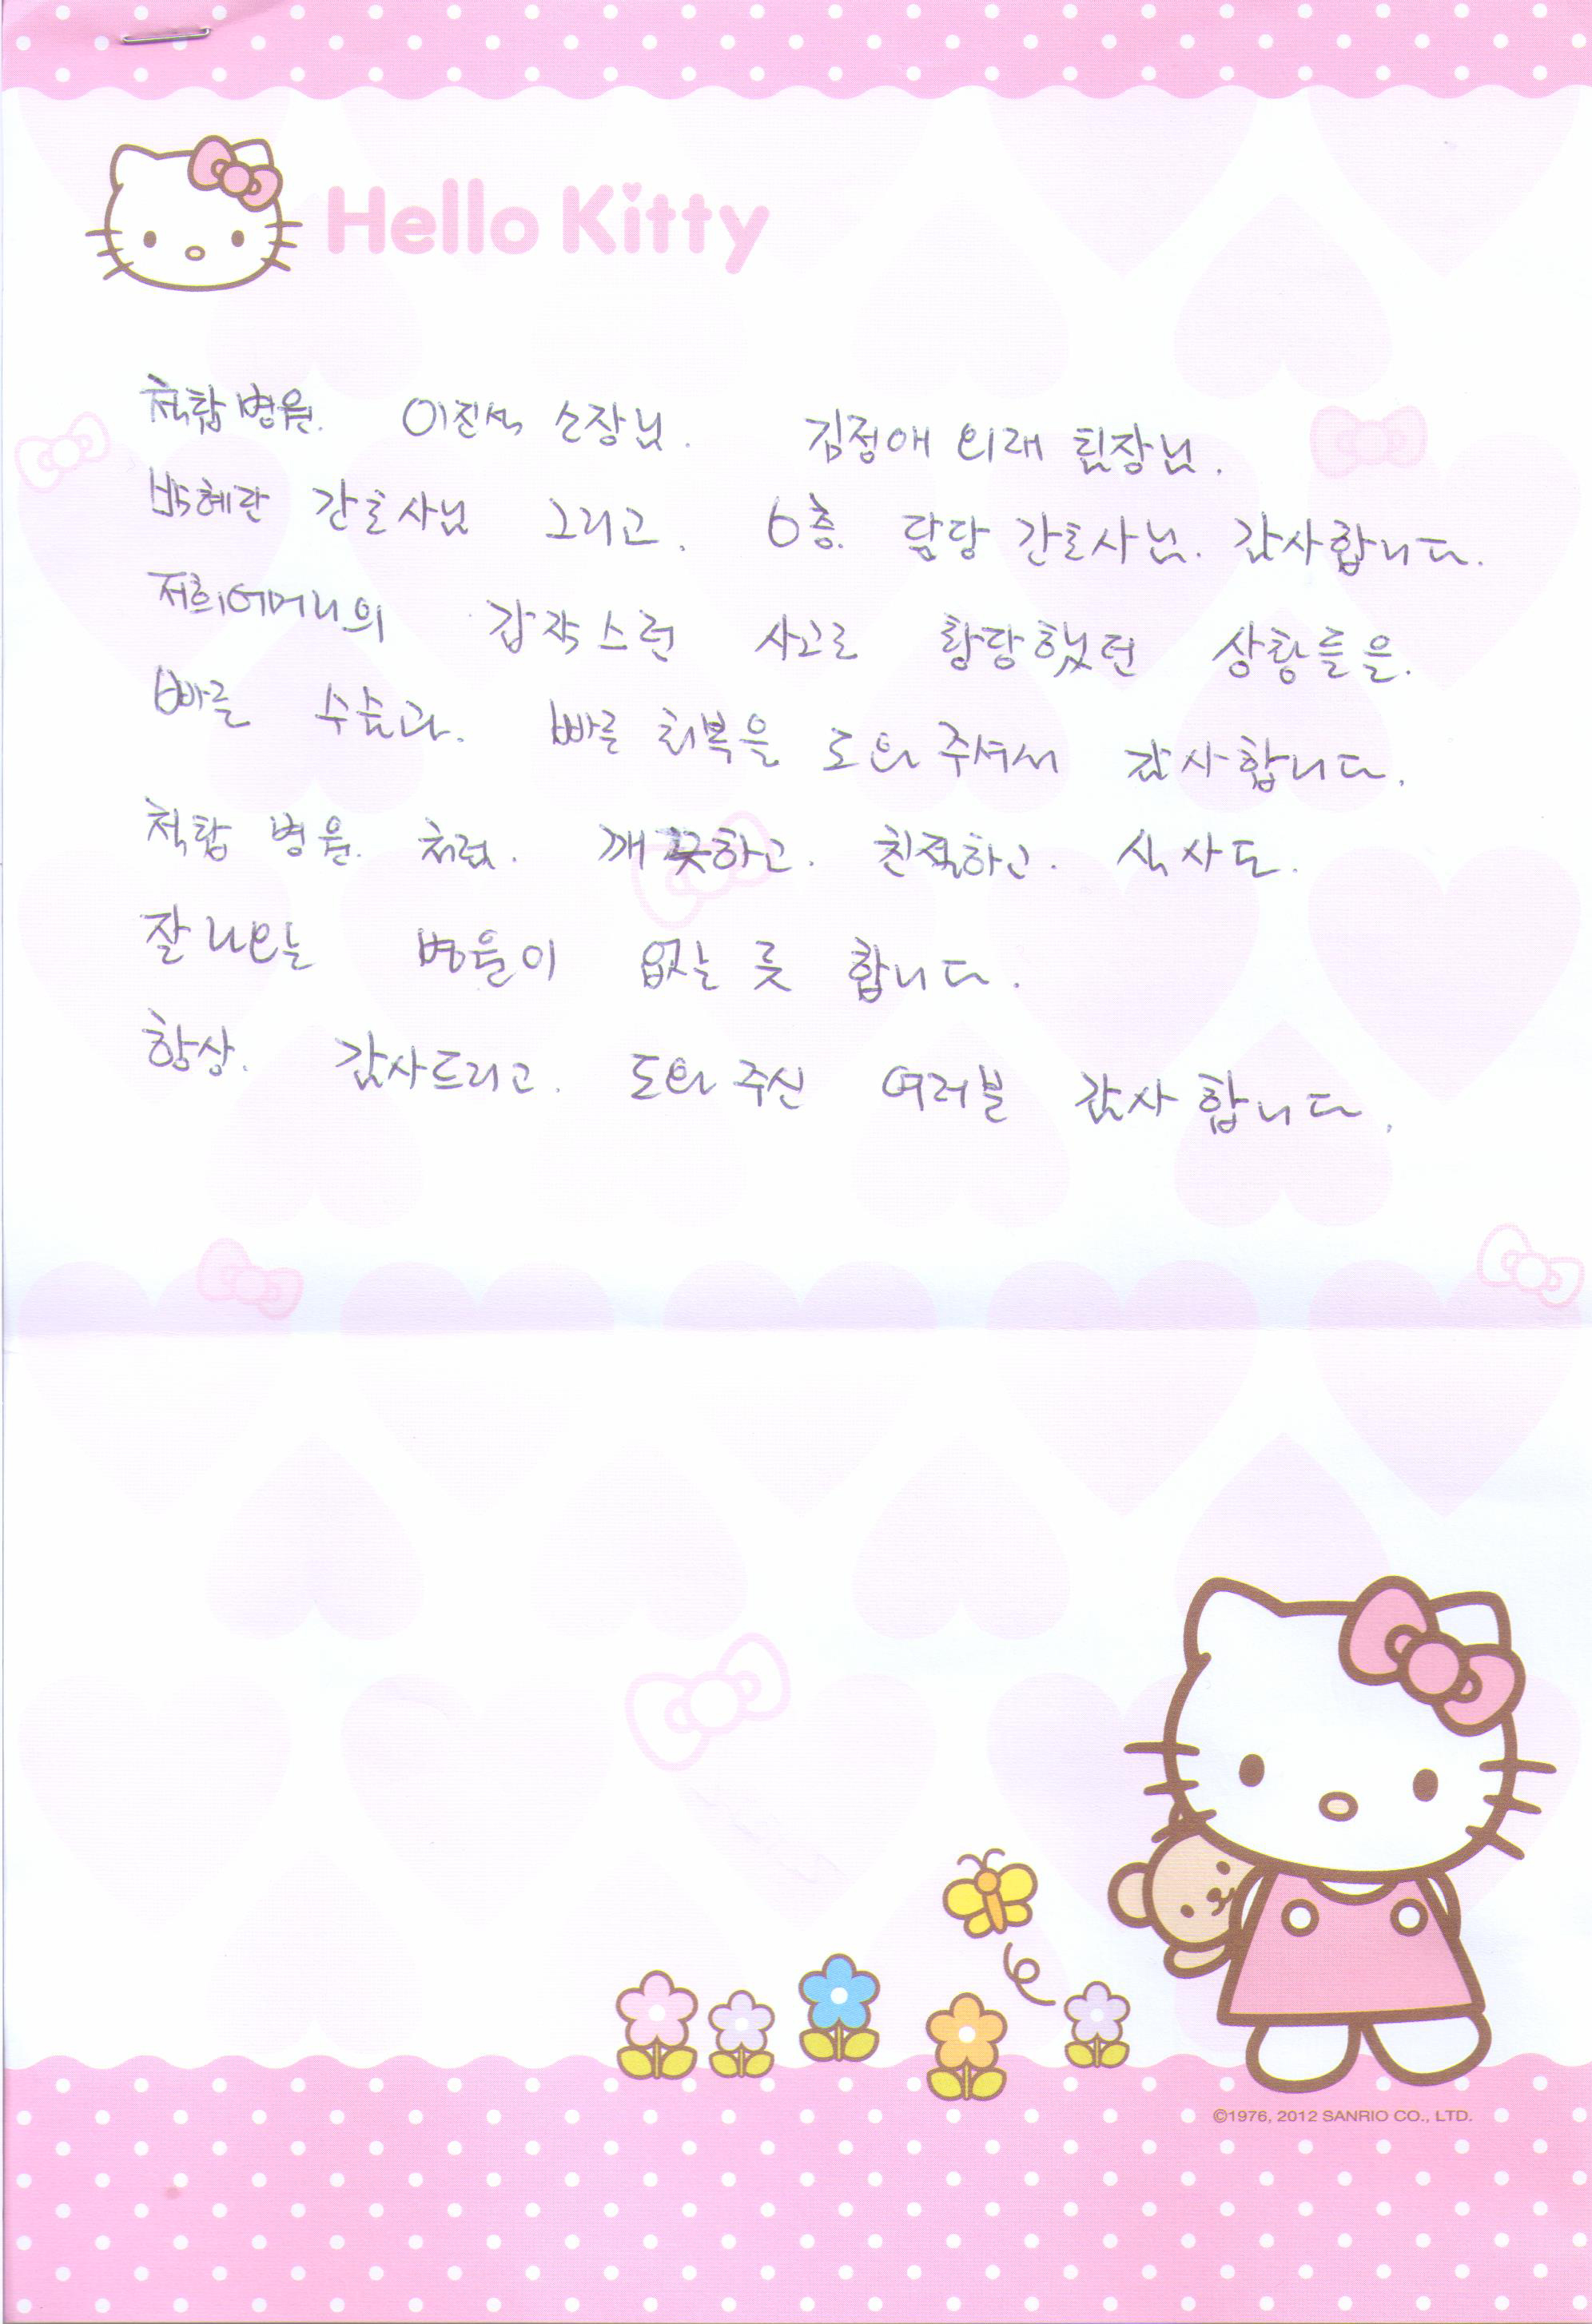 Hello Kitty
척탑병원. 이진석 소장님. 김정애 외래 팀장님.
박혜란 간호사님 그리고. 6층. 담당 간호사님. 감사합니다.
저희어머니의 갑작스런 사고로 황당했던 상황들을.
빠른 수습과. 빠른 회복을 도와주셔서 감사합니다.
척탑 병원. 처럼. 깨끗하고. 친절하고. 식사도.
잘 나오는 병원이 없는 듯 합니다.
항상. 감사드리고. 도와주신 여러분 감사합니다.
©1976, 2012 SANRIO CO., LTD.